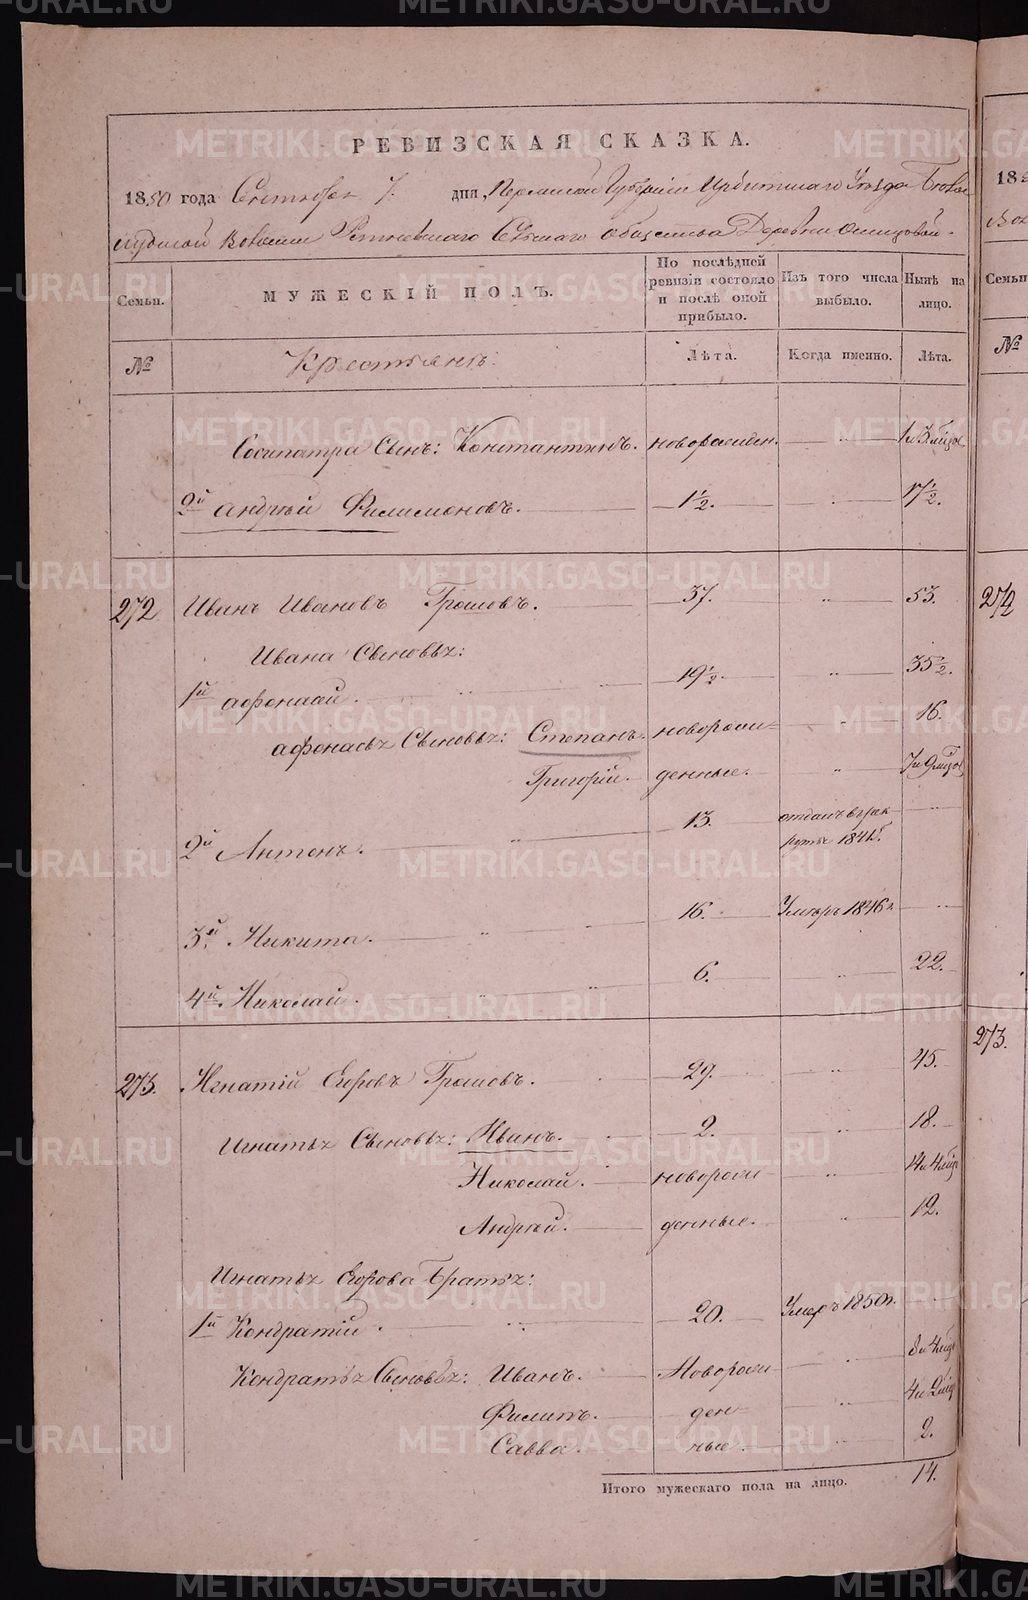 РЕВИЗСКАЯ СКАЗКА.
1850 года Сентября 7. дня, Пермской Губернiи Ирбитскаго Уѣзда
Волости Сельскаго общества Деревни
Семьи.
МУЖЕСКIЙ ПОЛЪ.
По послѣдней ревизiи состояло и послѣ оной прибыло.
Изъ того числа выбыло.
Нынѣ на лицо.
№
Крестьянъ:
Лѣта.
Когда именно.
Лѣта.
Сосипатра Сынъ: Константинъ. новорожден. 1 и 3 мѣся
2й Андрей Филимоновъ. 1 1/2. 17 1/2.
272 Иванъ Ивановъ Громовъ. 37. 53.
Ивана Сыновья:
1й Афонасiй. 19 1/2. 35 1/2.
Афонасья Сыновья: Степанъ. новорож- 16.
Григорiй. денные. 7 и 9 мѣся
2й Антонъ. 13. отданъ въ рек
руты 1841г.
3й. Никита. 16. Умеръ 1846 г.
4й. Николай. 6. 22.
273. Игнатiй Егоровъ Громовъ. 29. 45.
Игнатья Сыновья: Иванъ. 2. 18.
Николай. новорож- 14 и 4 мѣся
Андрей. денные. 12.
Игнатья Егорова Братья:
1й Кондратiй. 20. Умеръ 1850 г.
Кондратья Сыновья: Иванъ. Новорож- 8 и 4 мѣся
Филипъ. ден- 4 и 2 мѣся
Савва. ные. 2.
Итого мужескаго пола на лицо. 14.
18
Семьи
№
274
275.
METRIKI.GASO-URAL.RU